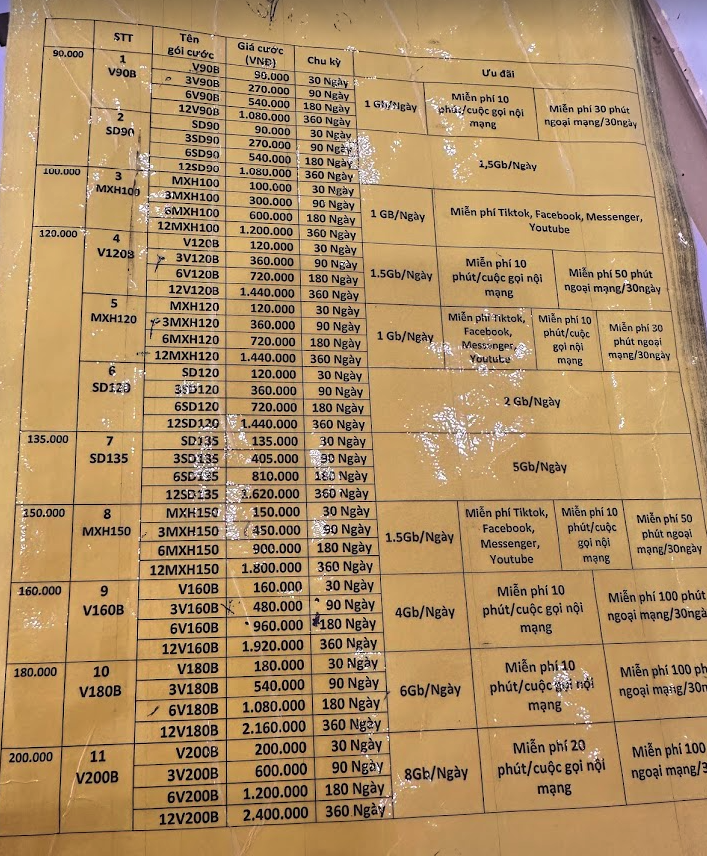 STT
Tên gói cước
Giá cước (VNĐ)
Chu kỳ
Ưu đãi
90.000
1
V90B
V90B 90.000 30 Ngày
3V90B 270.000 90 Ngày
6V90B 540.000 180 Ngày
12V90B 1.080.000 360 Ngày
1 Gb/Ngày
Miễn phí 10 phút/cuộc gọi nội mạng
Miễn phí 30 phút ngoại mạng/30ngày
2
SD90
SD90 90.000 30 Ngày
3SD90 270.000 90 Ngày
6SD90 540.000 180 Ngày
12SD90 1.080.000 360 Ngày
1,5Gb/Ngày
100.000
3
MXH100
MXH100 100.000 30 Ngày
3MXH100 300.000 90 Ngày
6MXH100 600.000 180 Ngày
12MXH100 1.200.000 360 Ngày
1 GB/Ngày
Miễn phí Tiktok, Facebook, Messenger,
Youtube
120.000
4
V120B
V120B 120.000 30 Ngày
3V120B 360.000 90 Ngày
6V120B 720.000 180 Ngày
12V120B 1.440.000 360 Ngày
1.5Gb/Ngày
Miễn phí 10
phút/cuộc gọi nội
mạng
Miễn phí 50 phút
ngoại mạng/30ngày
5
MXH120
MXH120 120.000 30 Ngày
3MXH120 360.000 90 Ngày
6MXH120 720.000 180 Ngày
12MXH120 1.440.000 360 Ngày
1 Gb/Ngày
Miễn phí Tiktok,
Facebook,
Messenger,
Youtube
Miễn phí 10
phút/cuộc
gọi nội
mạng
Miễn phí 30
phút ngoại
mạng/30ngày
6
SD120
SD120 120.000 30 Ngày
3SD120 360.000 90 Ngày
6SD120 720.000 180 Ngày
12SD120 1.440.000 360 Ngày
2 Gb/Ngày
135.000
7
SD135
SD135 135.000 30 Ngày
3SD135 405.000 90 Ngày
6SD135 810.000 180 Ngày
12SD135 1.620.000 360 Ngày
5Gb/Ngày
150.000
8
MXH150
MXH150 150.000 30 Ngày
3MXH150 450.000 90 Ngày
6MXH150 900.000 180 Ngày
12MXH150 1.800.000 360 Ngày
1.5Gb/Ngày
Miễn phí Tiktok,
Facebook,
Messenger,
Youtube
Miễn phí 10
phút/cuộc
gọi nội
mạng
Miễn phí 50
phút ngoại
mạng/30ngày
160.000
9
V160B
V160B 160.000 30 Ngày
3V160B 480.000 90 Ngày
6V160B 960.000 180 Ngày
12V160B 1.920.000 360 Ngày
4Gb/Ngày
Miễn phí 10
phút/cuộc gọi nội
mạng
Miễn phí 100 phút
ngoại mạng/30ngà
180.000
10
V180B
V180B 180.000 30 Ngày
3V180B 540.000 90 Ngày
6V180B 1.080.000 180 Ngày
12V180B 2.160.000 360 Ngày
6Gb/Ngày
Miễn phí 10
phút/cuộc gọi nội
mạng
Miễn phí 100 ph
ngoại mạng/30n
200.000
11
V200B
V200B 200.000 30 Ngày
3V200B 600.000 90 Ngày
6V200B 1.200.000 180 Ngày
12V200B 2.400.000 360 Ngày
8Gb/Ngày
Miễn phí 20
phút/cuộc gọi nội
mạng
Miễn phí 100
ngoại mạng/3